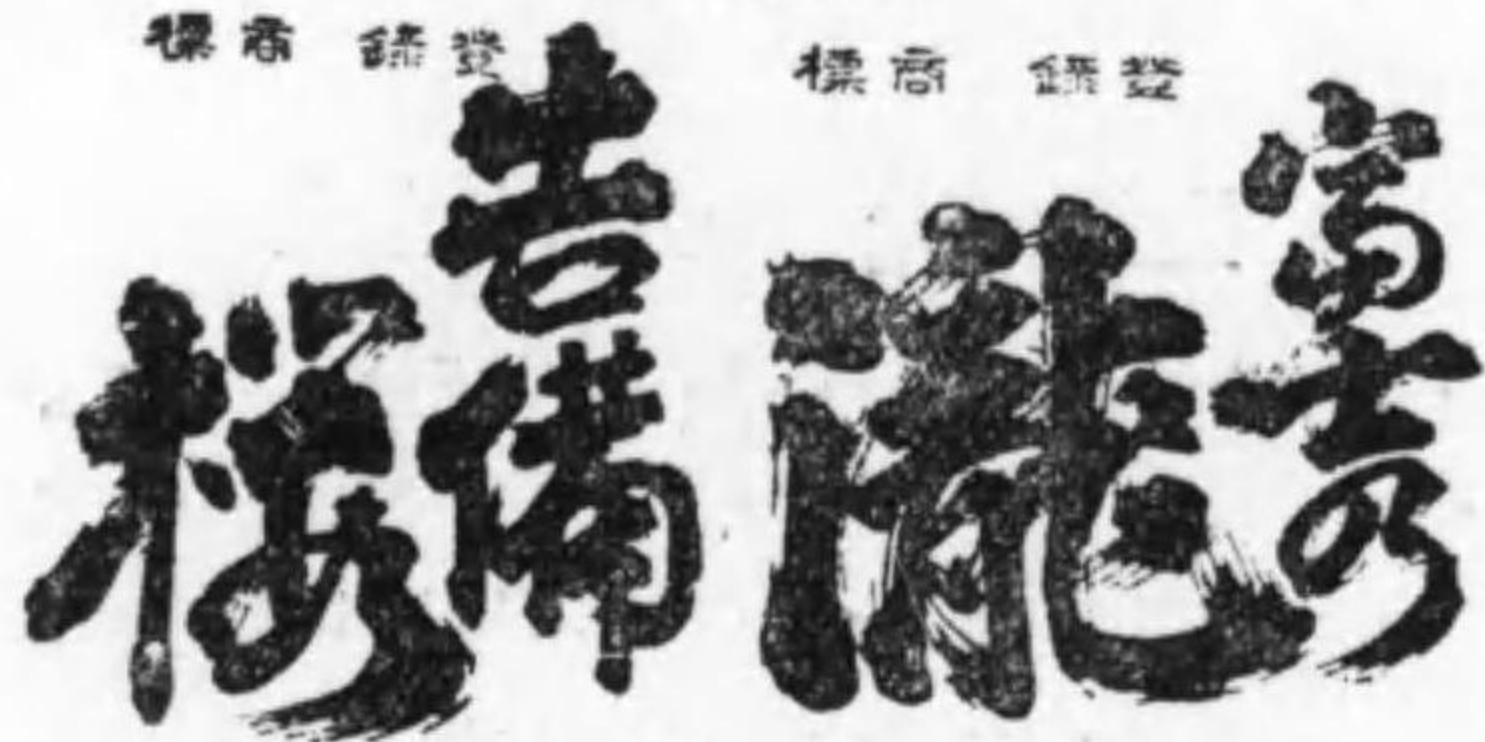 登錄 商標
富士乃
瀧
登錄 商標
吉備
櫻